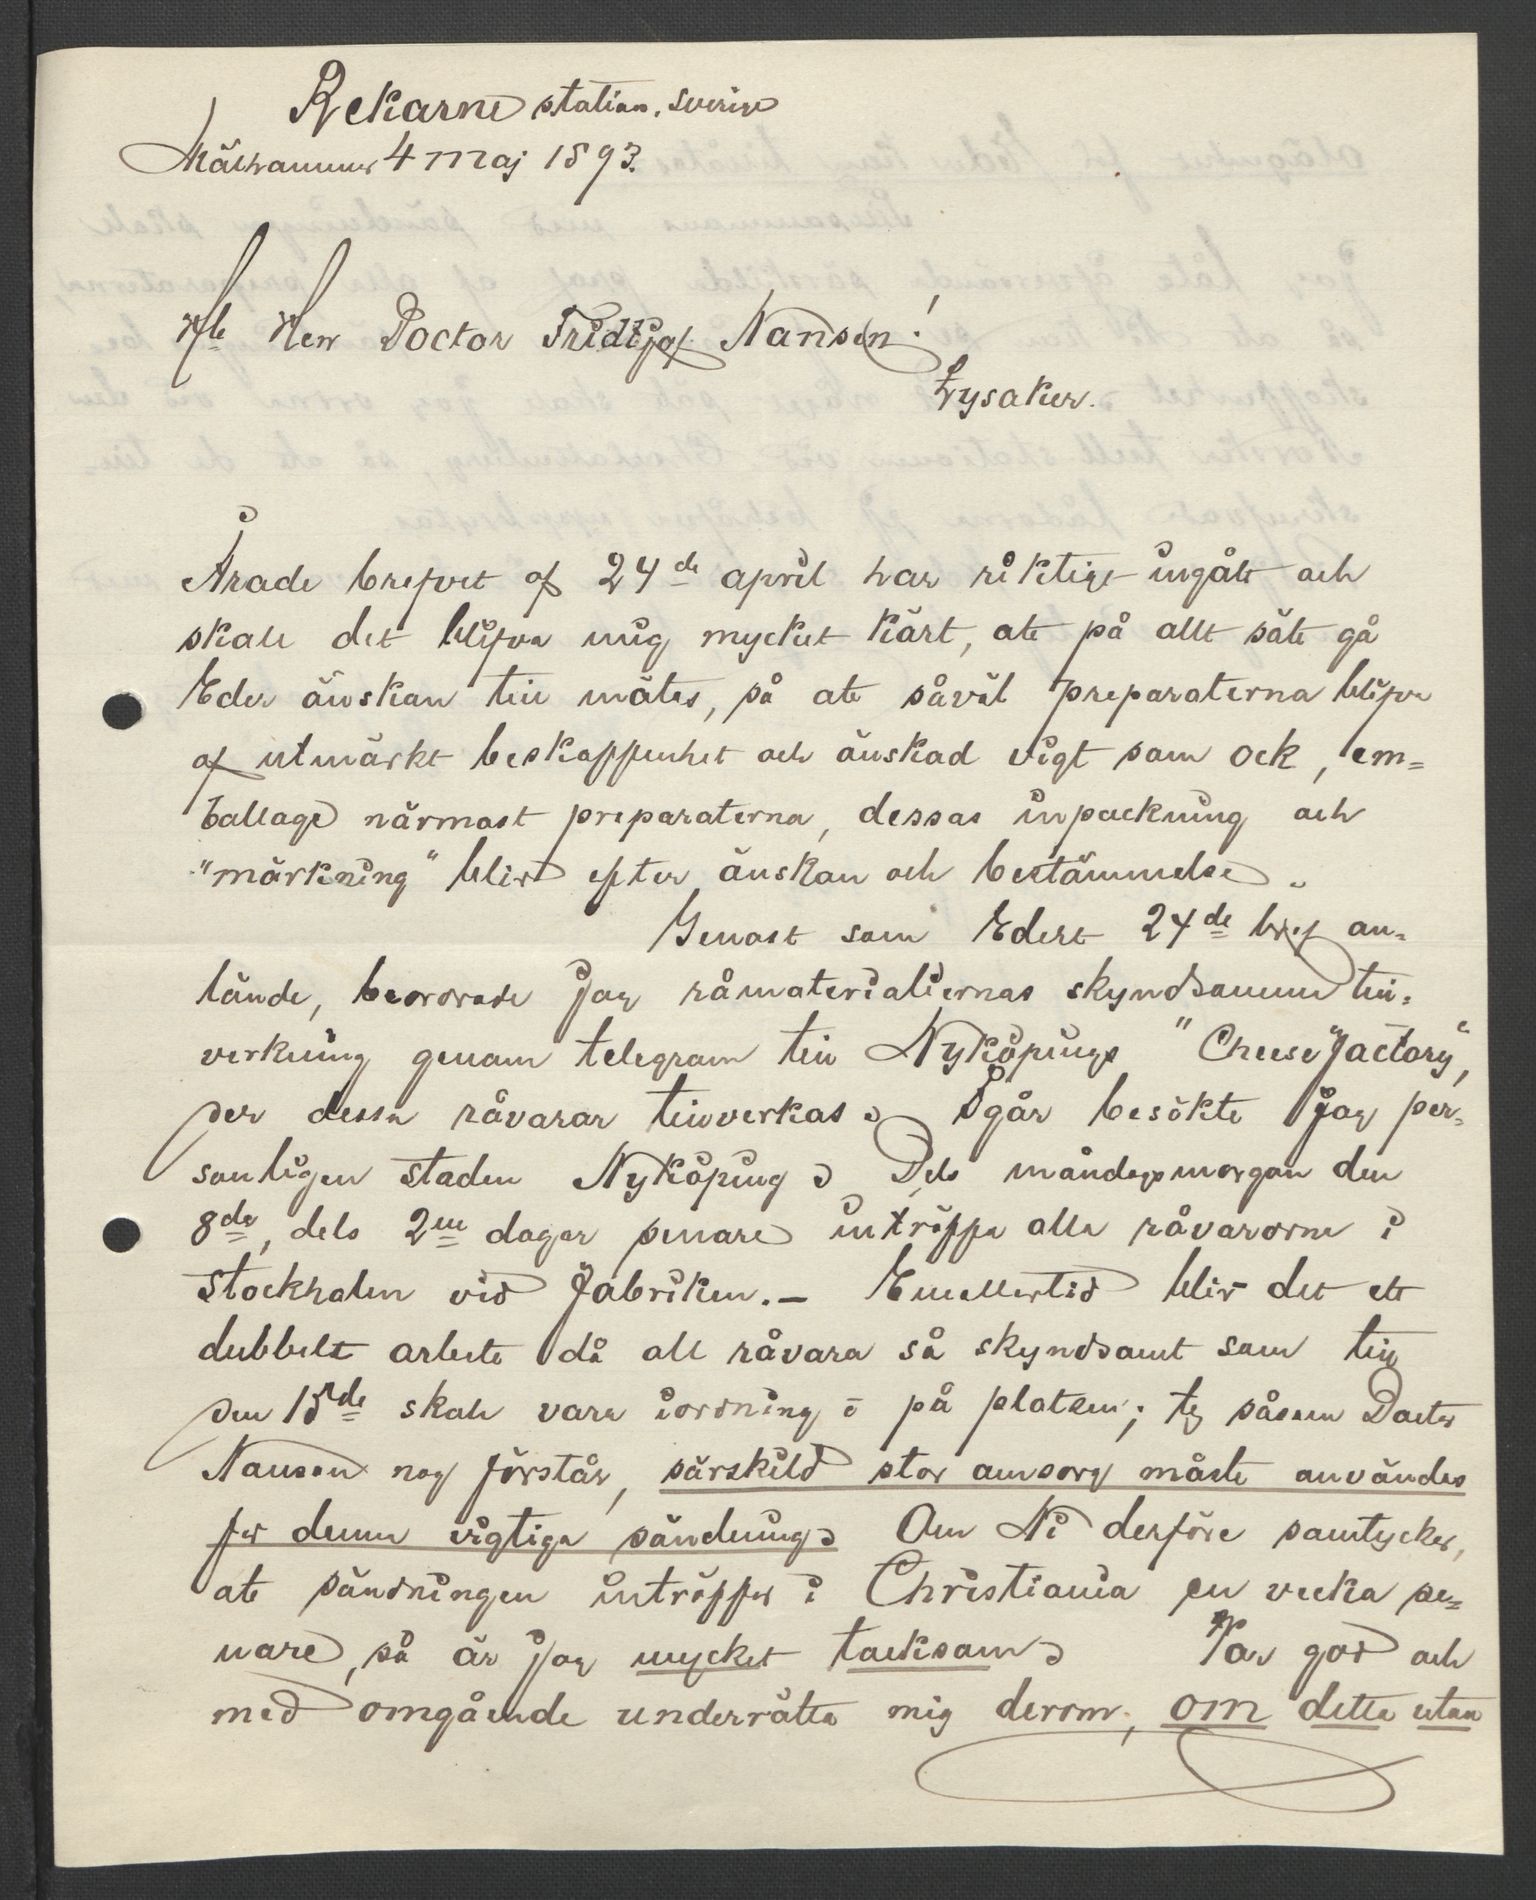 Rekarne station. Sverige
Mälhammar 4 maj 1893.
Hr Herr Doctor Fridtjof Nansen!
Lysaker.
Ärade brefvet af 24de april har riktigt ingått och
skall det blifva mig mycket kärt, att på allt sätt gå
Eder önskan till mötes, så att såväl preparaterna blifva
af utmärkt beskaffenhet och önskad vigt som ock, em=
ballage närmast preparaterna, dessas inpackning och
"märkning" blir efter önskan och bestämmelse.
Genast som Edert 24de bref an=
lände, beordrade jag råmaterialiernas skyndsamma till=
verkning genom telegram till Nyköpings "Cheese factory",
der dessa råvaror tillverkas. Igår besökte jag per=
sonligen staden Nyköping. Dels måndagsmorgon den
8de, dels 2ne dagar senare inträffa alla råvarorna i
Stockholm vid fabriken. – Emellertid blir det ett
dubbelt arbete då all råvara så skyndsamt som till
den 15de skall vara i ordning på platsen; ty såsom Doctor
Nansen nog förstår, särskild stor omsorg måste användas
för denna vigtiga sändning. Om Ni derföre samtycker,
att sändningen inträffar i Christiania en vecka se=
nare, så är jag mycket tacksam. Var god och
med omgående underrätta mig derom, om detta utan